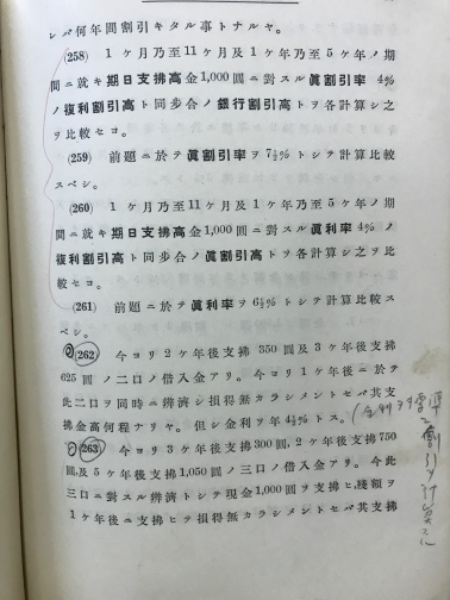 レバ何年間割引キタル事トナルヤ。
(258) 1ケ月乃至11ケ月及1ケ年乃至5ケ年ノ期
間ニ就キ期日支拂高金1,000圓ニ對スル眞割引率 4%
ノ複利割引高ト同步合ノ銀行割引高トヲ各計算シ之
ヲ比較セコ。
(259) 前題ニ於テ眞割引率ヲ7½%トシテ計算比較
スベシ。
(260) 1ケ月乃至11ケ月及1ケ年乃至5ケ年ノ期
間ニ就キ期日支拂高金1,000圓ニ對スル眞利率4%ノ
複利割引高ト同步合ノ眞割引高トヲ各計算シ之ヲ比
較セコ。
(261) 前題ニ於テ眞利率ヲ6½%トシテ計算比較ス
ベシ。
(262) 今ヨリ2ケ年後支拂350圓及3ケ年後支拂
625圓ノ二口ノ借入金アリ。今ヨリ1ケ年後ニ於テ
此二口ヲ同時ニ辨濟シ損得無カラシメントセバ其支
拂金高何程ナリヤ。但シ金利ヲ年4½%トス。
(263) 今ヨリ3ケ年後支拂300圓,2ケ年後支拂750
圓,及5ケ年後支拂1,050圓ノ三口ノ借入金アリ。今此
三口ニ對スル辨濟トシテ現金1,000圓ヲ支拂ヒ,殘額ヲ
1ケ年後ニ支拂ヒテ損得無カラシメントセバ其支拂
割引ヲ計算